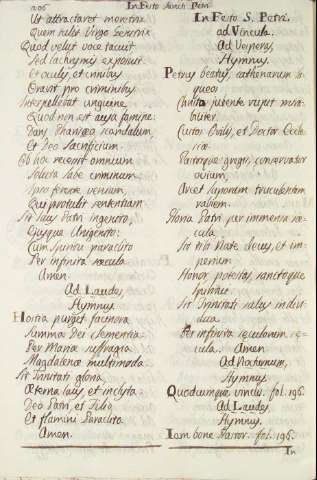 206
In Festo Sancti Petri
Ut attractaret
Quem tulit Virgo
Quod velut voce tacuit
Sed lachrymis exposuit.
Et oculis, et crinibus
Oravit pro criminibus
Interpellabat unguine,
Quod non est ausa famine:
Dans Phariseo scandalum,
Et Deo Sacrificium.
Ob hoc recepit omnium
Soluta labe criminum
Ipso ferente veniam,
Qui protulit sententiam.
Sit laus Patri ingenito,
Ejusque Unigenito:
Cum Spiritu paraclito
Per infinita sæcula
Amen.
Ad Laudes,
Hymnus
Hostia purget facinora
Summa Dei clementia:
Per Mariæ suffragia
Magdalenæ multimoda.
Sit Trinitati gloria,
Æterna laus, et inclyta:
Deo Patri, et Filio
Et flamini Paraclito
Amen.
In Festo S. Petri.
ad Vincula.
Ad Vesperas,
Hymnus.
Petrus beatus, cathenarum la-
queos
Christo jubente rupit mira-
biliter.
Custos Ovilis, et Doctor Eccle-
siæ
Pastorque gregis, conservator
ovium,
Arcet luporum truculentam
rabiem.
Gloria Patri per immensa sæ-
cula
Sit tibi Nate decus, et im-
perium
Honor potestas, sanctoque
Spiritui
Sit Trinitati salus indivi-
dua
Per infinita sæculorum sæ-
cula. Amen.
Ad Nocturnum,
Hymnus.
Quodcumque vinclis. fol. 196.
Ad Laudes,
Hymnus.
Iam bone Pastor. fol. 196.
In